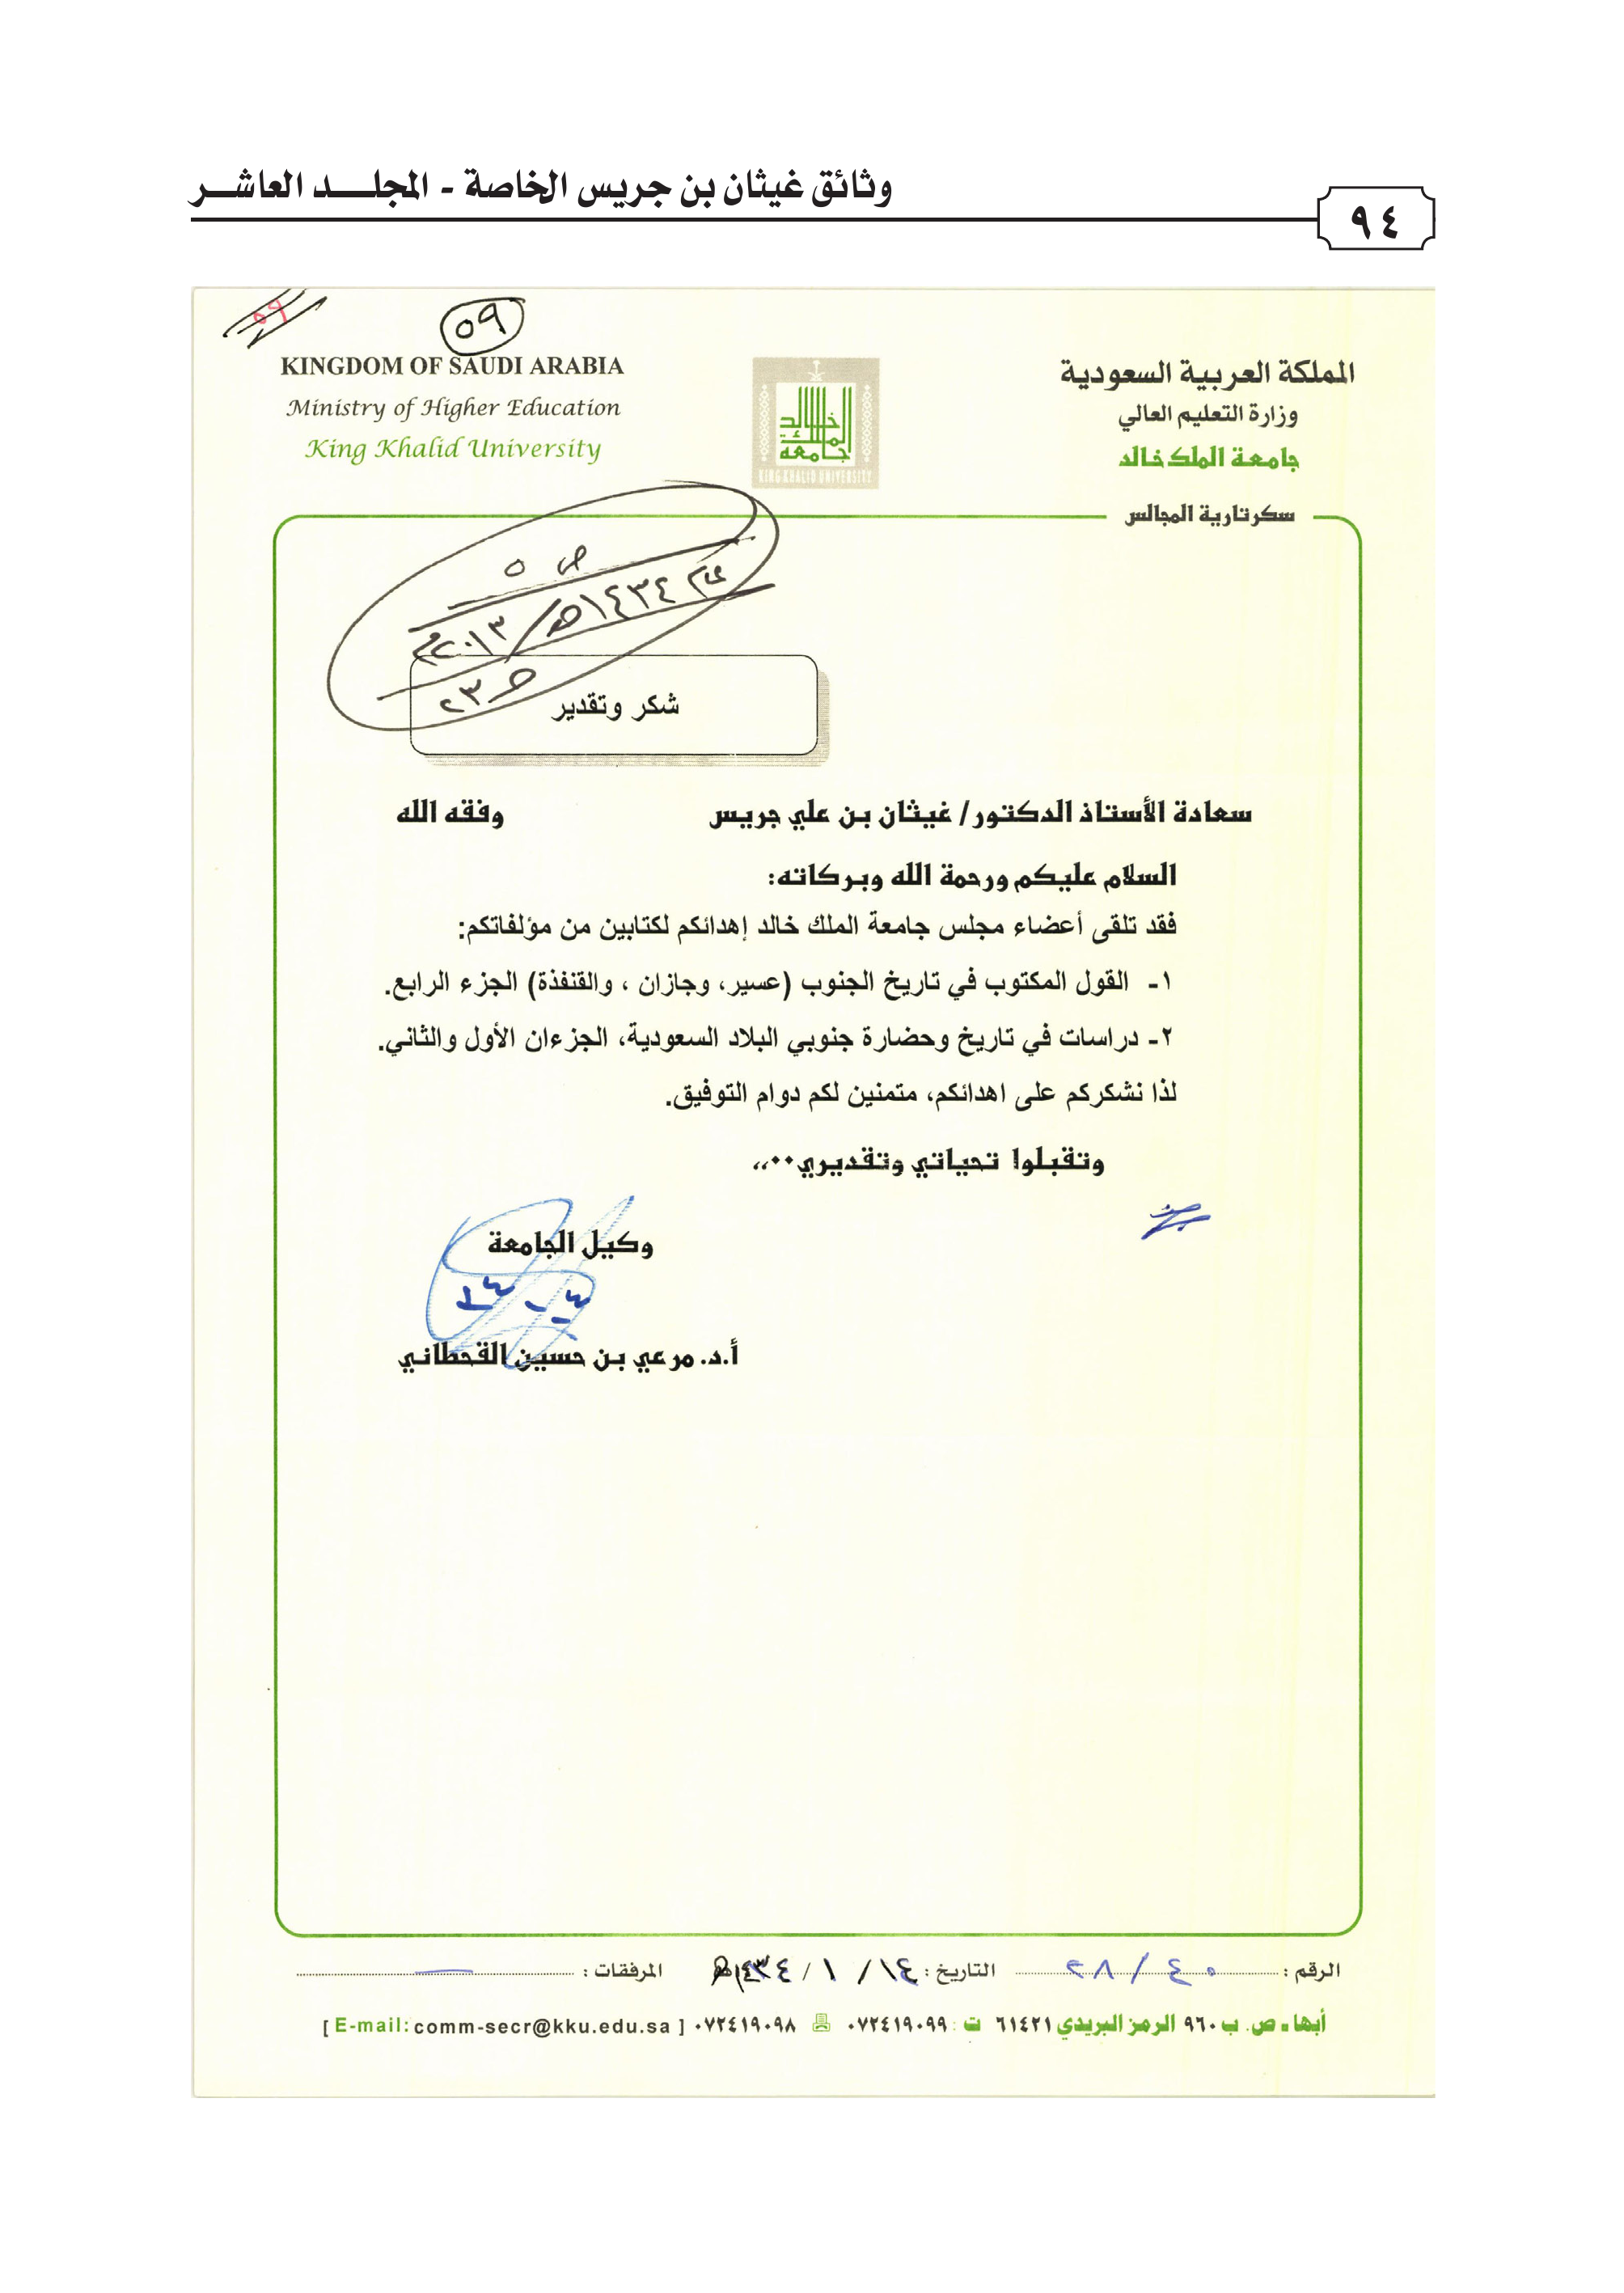 وثائق غيثان بن جريس الخاصة - المجلـــد العاشـــر
٩٤
٥٩
٥٩
KINGDOM OF SAUDI ARABIA
Ministry of Higher Education
King Khalid University
جامعة الملك خالد
KING KHALID UNIVERSITY
المملكة العربية السعودية
وزارة التعليم العالي
جامعة الملك خالد
سكرتارية المجالس
ص ٥
عام ١٤٣٤هـ/ ٢٠١٣م
٢٣
شكر وتقدير
سعادة الأستاذ الدكتور/ غيثان بن علي جريس وفقه الله
السلام عليكم ورحمة الله وبركاته:
فقد تلقى أعضاء مجلس جامعة الملك خالد إهدائكم لكتابين من مؤلفاتكم:
١- القول المكتوب في تاريخ الجنوب (عسير، وجازان ، والقنفذة) الجزء الرابع.
٢- دراسات في تاريخ وحضارة جنوبي البلاد السعودية، الجزءان الأول والثاني.
لذا نشكركم على اهدائكم، متمنين لكم دوام التوفيق.
وتقبلوا تحياتي وتقديري٠٠،،
وكيل الجامعة
أ.د. مرعي بن حسين القحطاني
الرقم : ٢٨/٤٠ التاريخ : ١٤ / ١ / ١٤٣٤هـ المرفقات :
أبها - ص. ب ٩٦٠ الرمز البريدي ٦١٤٢١ ت : ٠٧٢٤١٩٠٩٩ ٠٧٢٤١٩٠٩٨ [ E-mail: comm-secr@kku.edu.sa ]